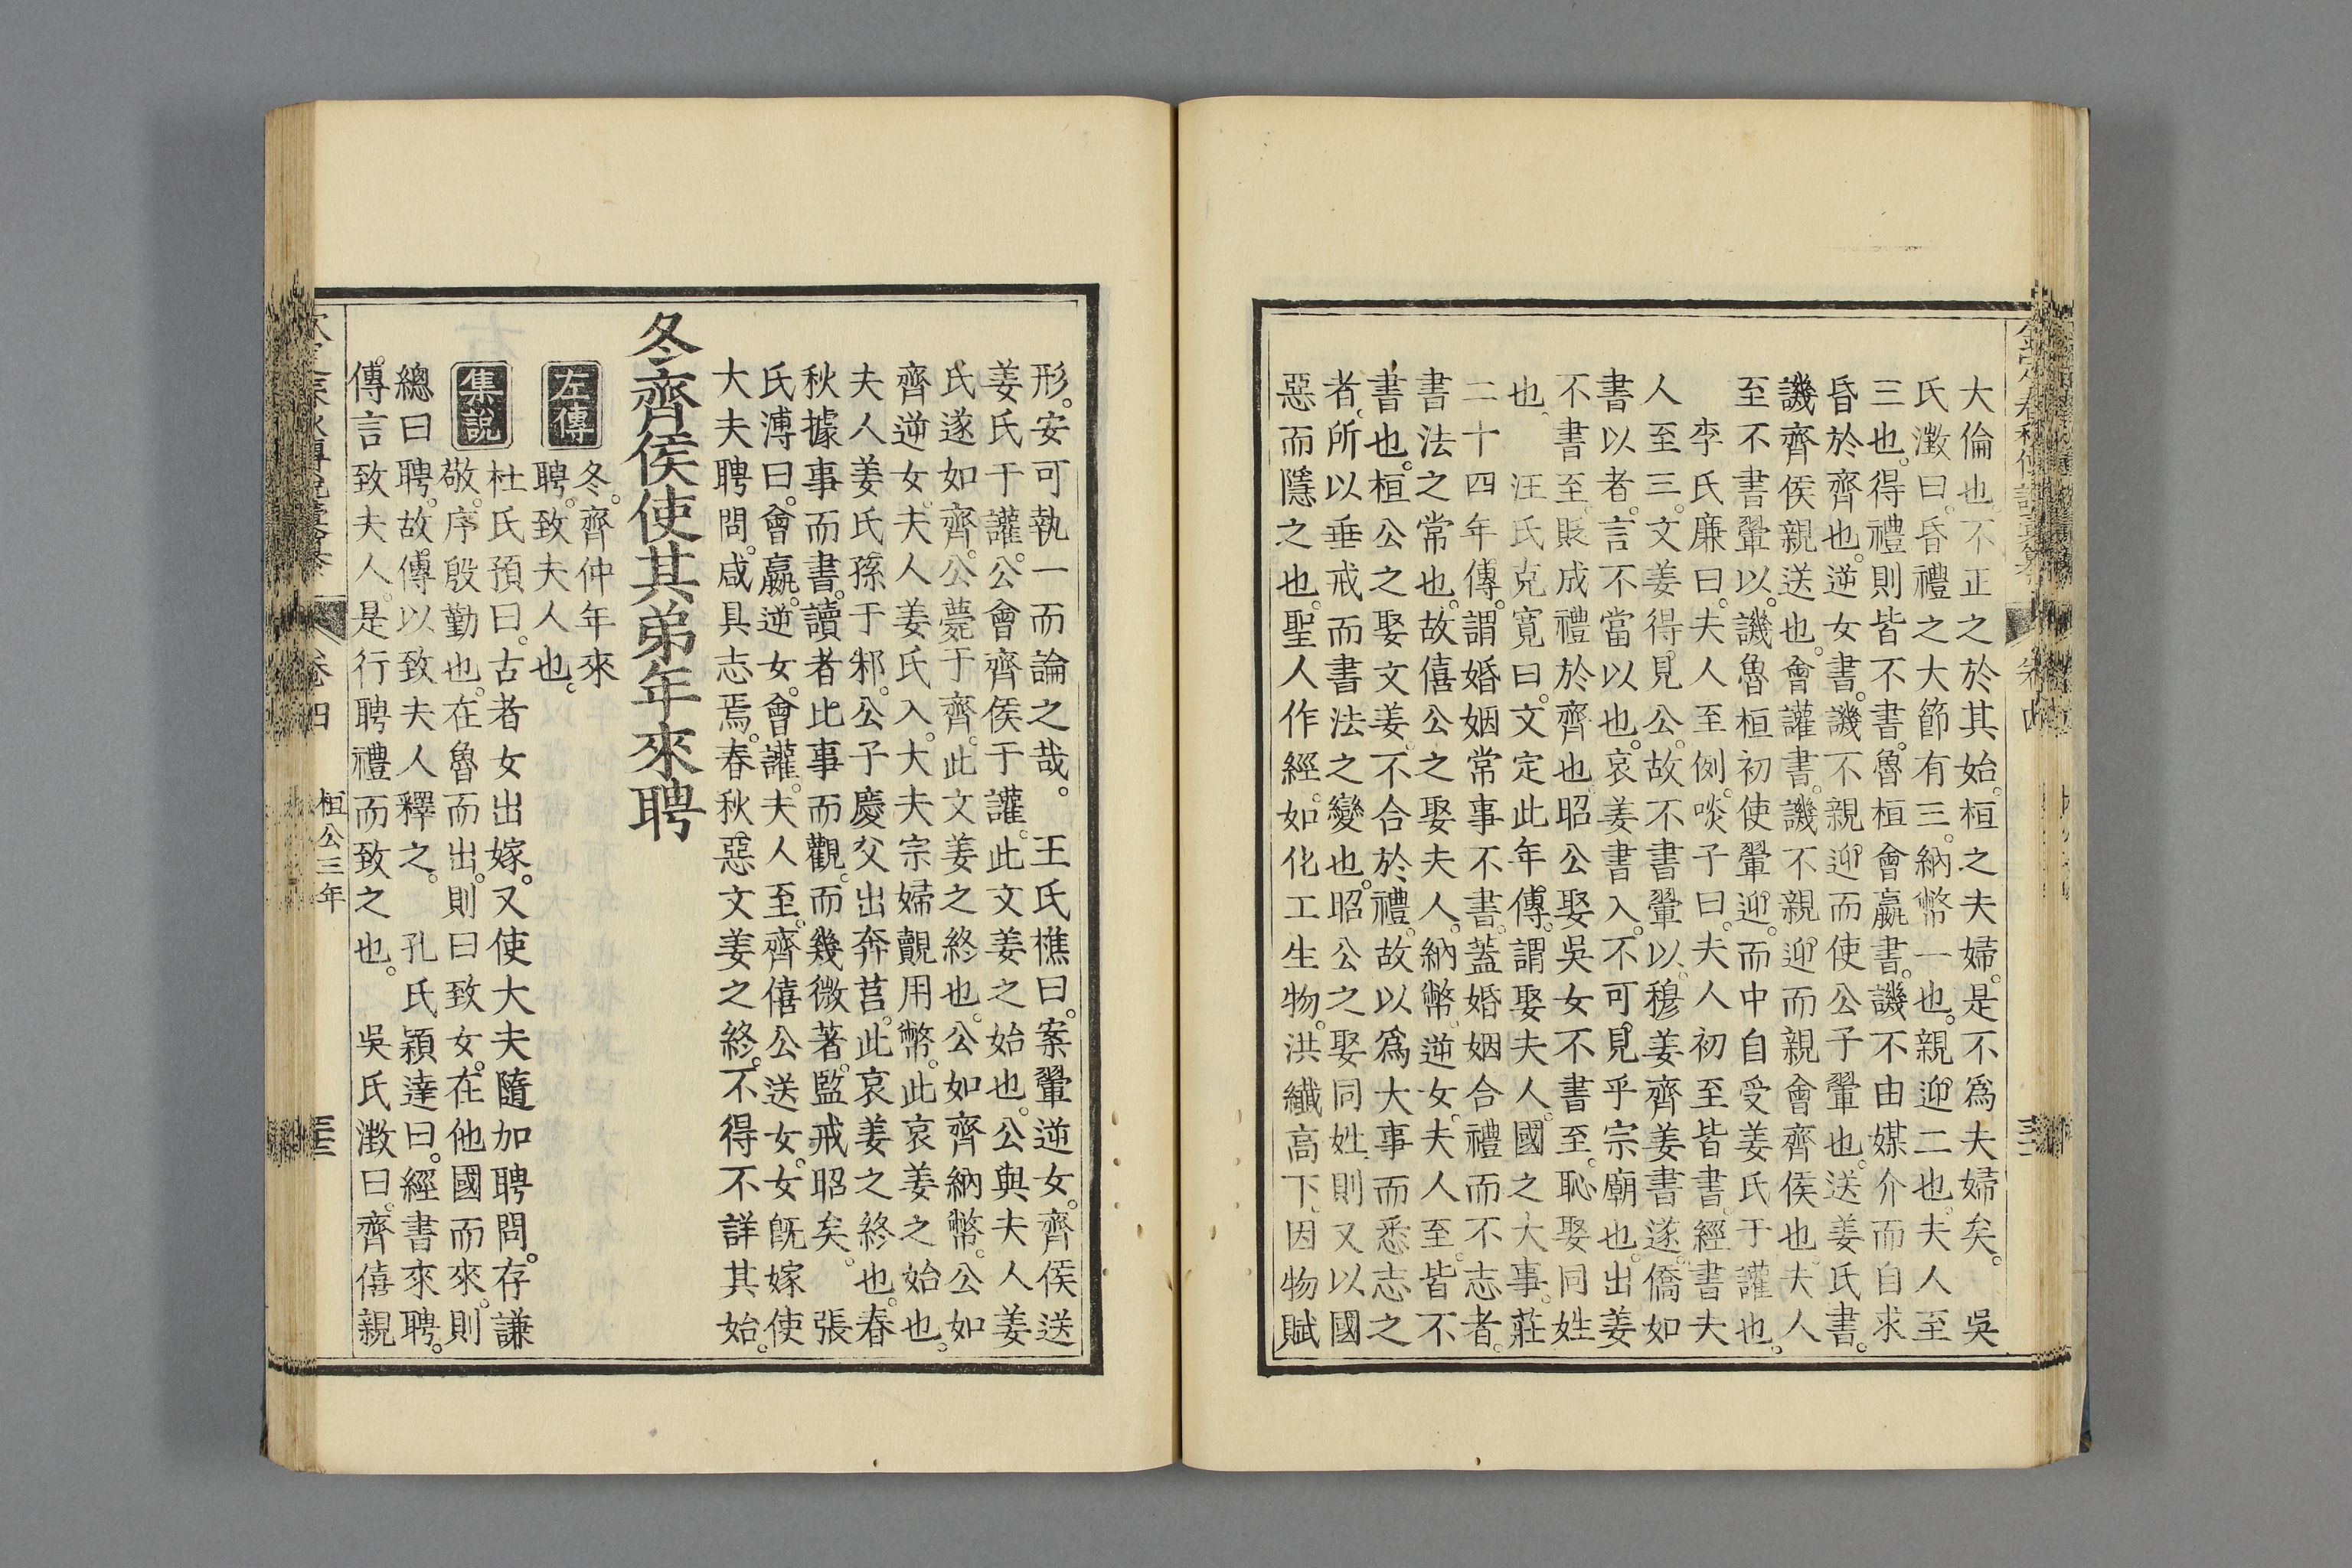 大倫也不正之於其始桓之夫婦是不爲夫婦矣。　吳
氏澂曰。昏禮之大節有三。納幣一也。親迎二也。夫人至
三也。得禮則皆不書。魯桓會嬴書。譏不由媒介而自求
昏於齊也。逆女書。譏不親迎而使公子翬也。送姜氏書。
譏齊侯親送也。會讙書。譏不親迎而親會齊侯也。夫人
至不書翬以。譏魯桓初使翬迎。而中自受姜氏于讙也。
李氏廉曰。夫人至例。啖子曰。夫人初至皆書。經書夫
人至三。文姜得見公。故不書翬以。穆姜齊姜書遂。僑如
書以者。言不當以也。哀姜書入。不可見乎宗廟也。出姜
不書至。賤成禮於齊也。昭公娶吳女不書至。恥娶同姓
也。　汪氏克寬曰。文定此年傳。謂娶夫人。國之大事。莊
二十四年傳。謂婚姻常事不書。蓋婚姻合禮而不志者。
書法之常也。故僖公之娶夫人。納幣。逆女。夫人至。皆不
書也。桓公之娶文姜。不合於禮。故以爲大事而悉志之
者。所以垂戒而書法之變也。昭公之娶同姓。則又以國
惡而隱之也。聖人作經。如化工生物。洪纖高下。因物賦
形。安可執一而論之哉。　王氏樵曰。案翬逆女。齊侯送
姜氏于讙。公會齊侯于讙。此文姜之始也。公與夫人姜
氏遂如齊。公薨于齊。此文姜之終也。公如齊納幣。公如
齊逆女。夫人姜氏入。大夫宗婦覿用幣。此哀姜之始也。
夫人姜氏孫于邾。公子慶父出奔莒。此哀姜之終也。春
秋據事而書。讀者比事而觀。而幾微著。監戒昭矣。　張
氏溥曰。會嬴。逆女。會讙。夫人至。齊僖公送女。女旣嫁使
大夫聘問。咸具志焉。春秋惡文姜之終。不得不詳其始。
冬齊侯使其弟年來聘
左傳　冬。齊仲年來
聘。致夫人也。
集說　杜氏預曰。古者女出嫁。又使大夫隨加聘問。存謙
敬。序殷勤也。在魯而出。則曰致女。在他國而來。則
總曰聘。故傳以致夫人釋之。　孔氏穎達曰。經書來聘。
傳言致夫人。是行聘禮而致之也。　吳氏澂曰。齊僖親
卷四　桓公三年